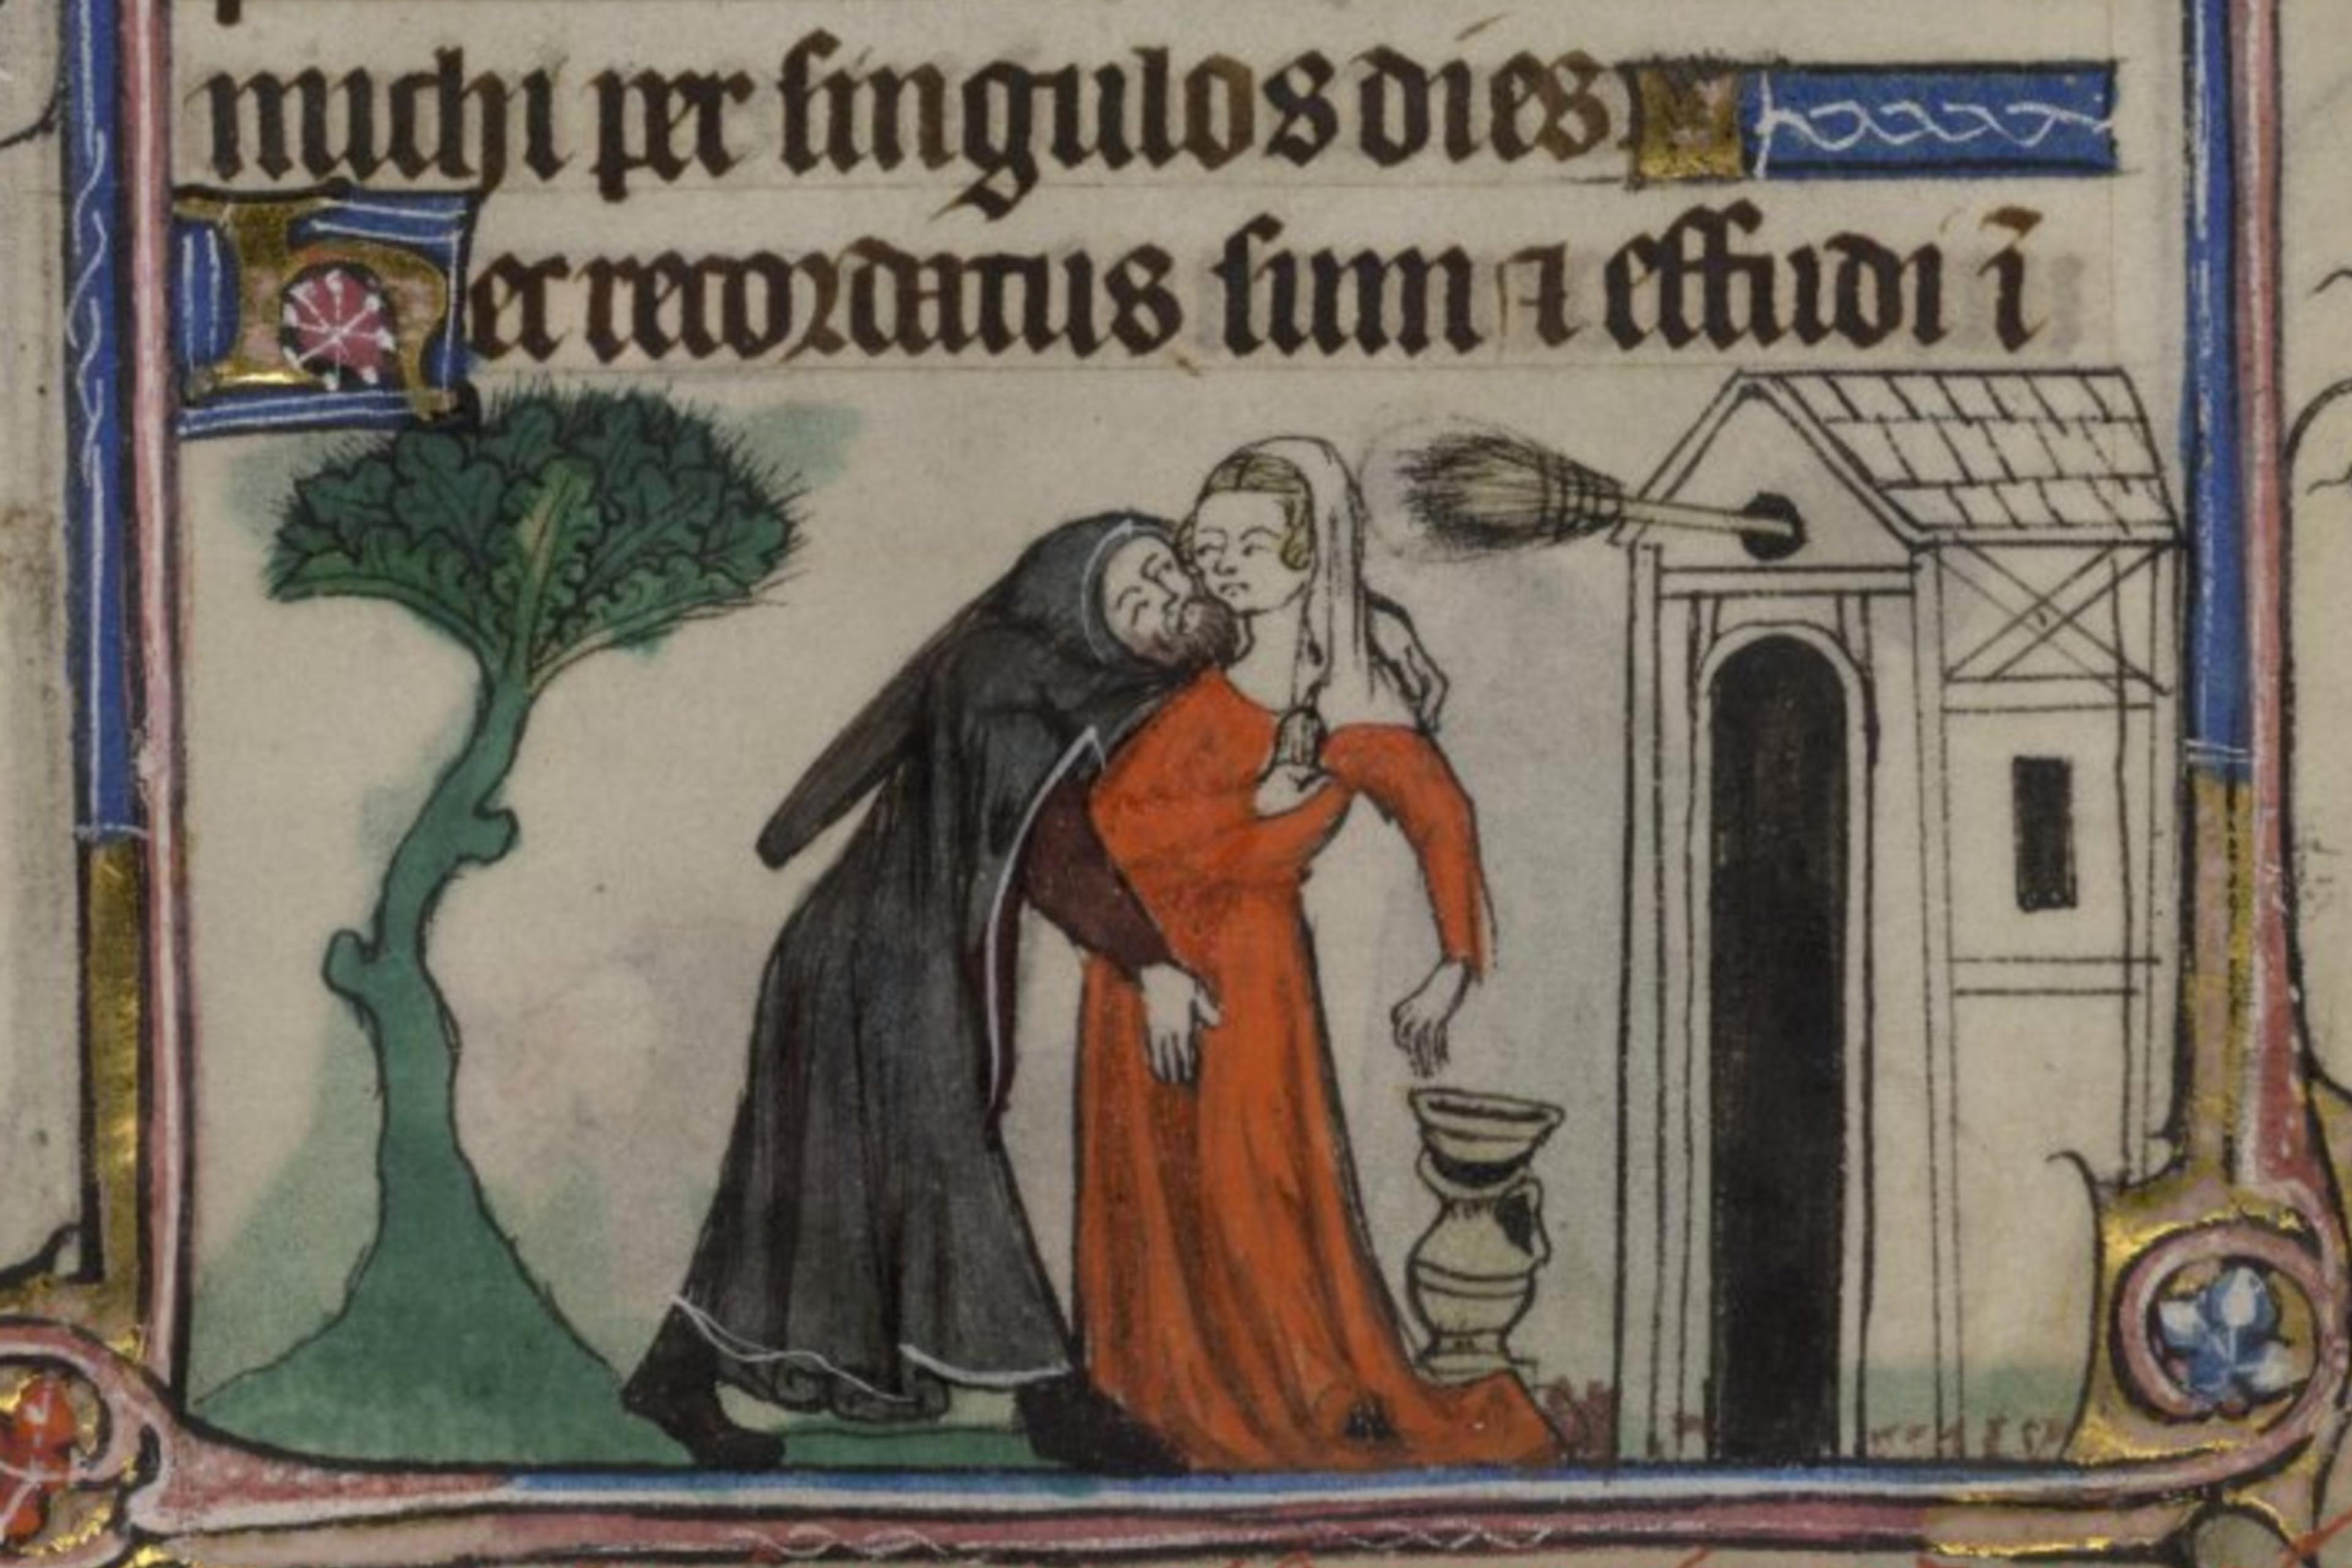 michi per singulos dies.
Hec recordatus sum ⁊ effudi ī